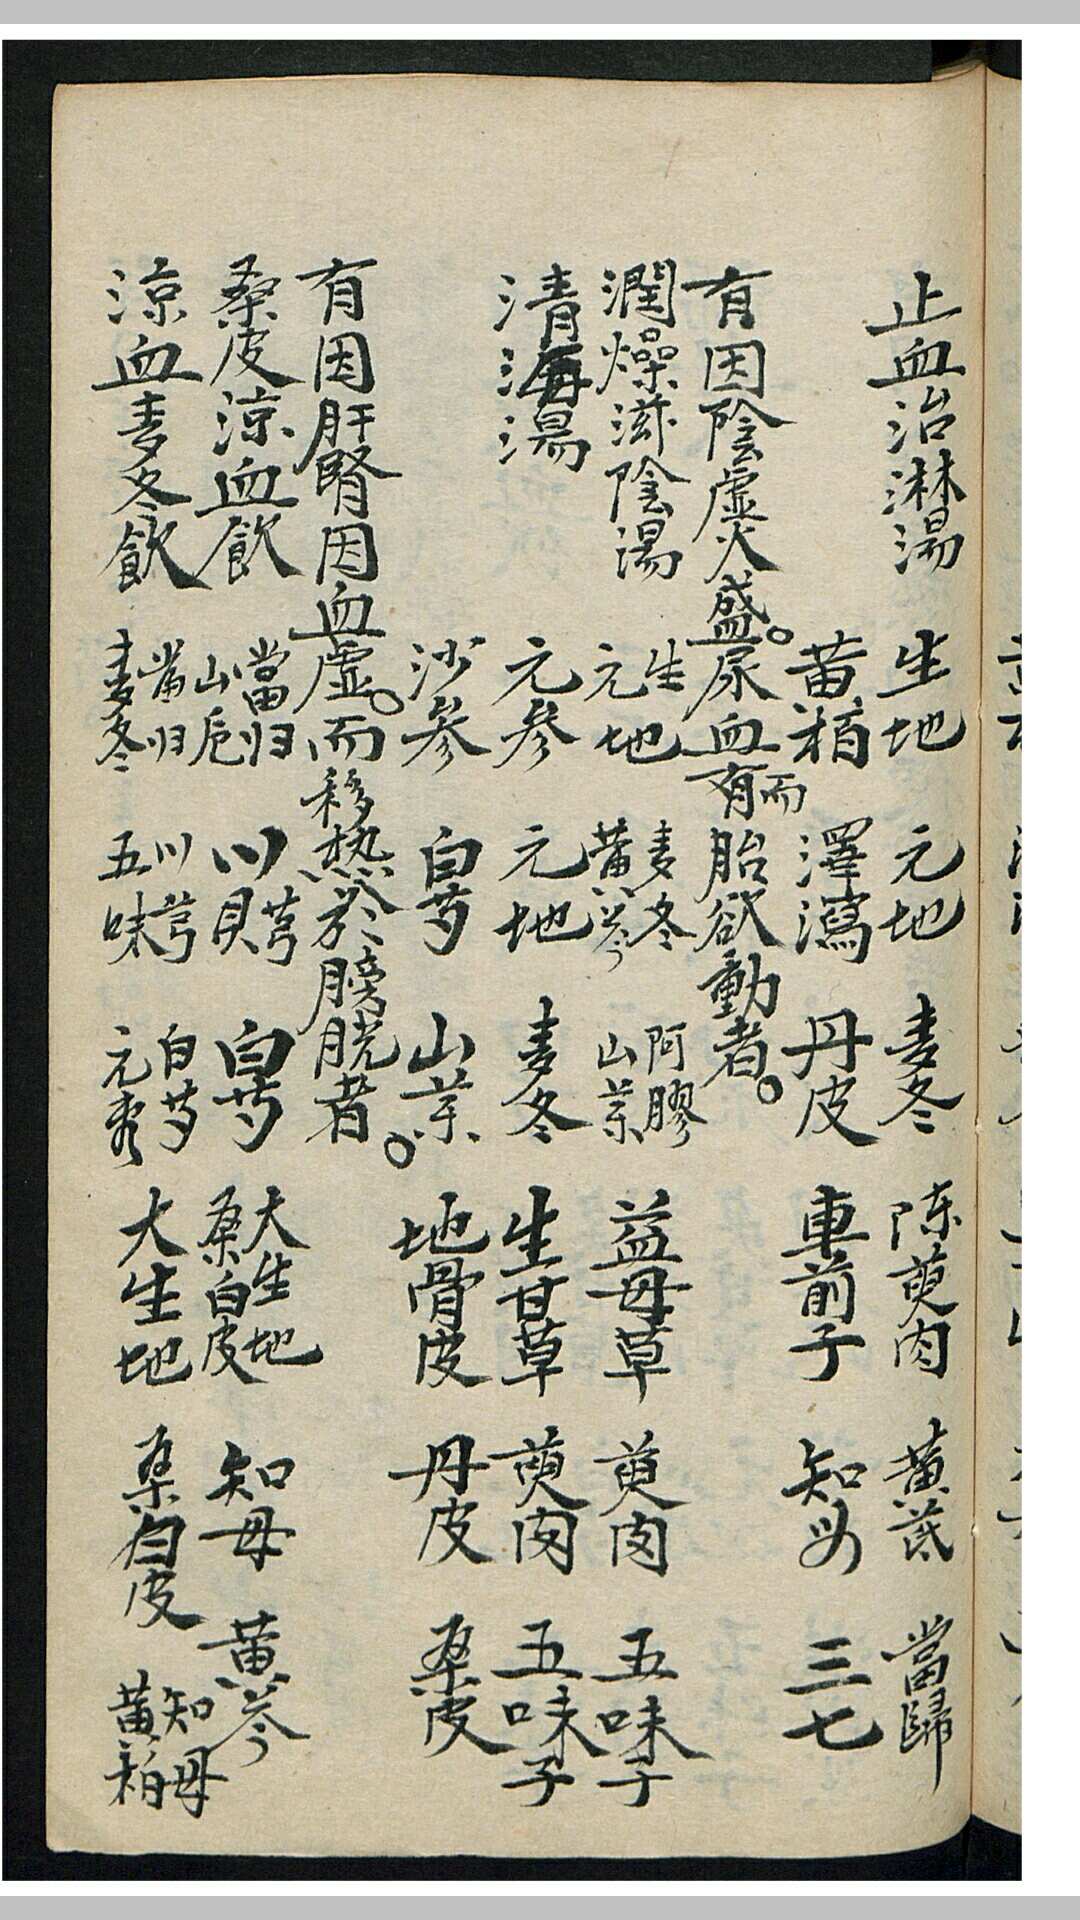 止血治淋湯 生地 元地 麦冬 陈萸肉 黄芪 當歸
黄柏 澤瀉 丹皮 車前子 知母 三七
有因陰虛火盛。尿血而有胎欲動者。
潤燥滋陰湯 生地 元地 麦冬 黄芩 阿膠 山藥 益母草 萸肉 五味子
清海湯 元參 元地 麦冬 生甘草 萸肉 五味子
沙參 白芍 山藥 地骨皮 丹皮 桑皮
有因肝腎因血虛。而移热於膀胱者。
桑皮涼血飲 當归 山卮 川芎 川貝 白芍 大生地 桑白皮 知母 黄芩
涼血麦冬飲 當归 麦冬 川芎 五味 白芍 元参 大生地 桑白皮 知母 黄柏